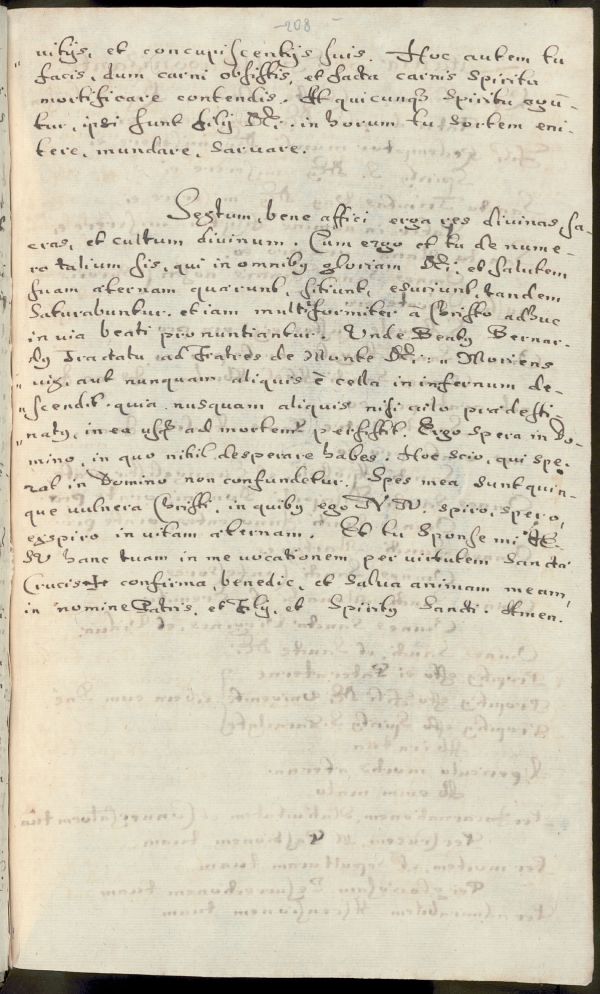 208
" uitijs, et concupiscentijs suis. Hoc autem tu
facis, dum carni obsistis, et facta carnis spiritu
mortificare contendis. Et quicunqz spiritu agū-
tur, ipsi sunt filij Dei. in horum tu sortem eni-
tere, mundare, saruare.
Septum, bene affici erga res divinas, sa-
cras, et cultum divinum. Cum ergo et tu de nume-
ro talium sis, qui in omniby gloriam Dei, et salutem
suam aternam quarunt, sitiunt, esuriunt, tandem
saturabuntur. etiam multiformiter à Christo adhuc
in via beati pronuntiantur. Unde Beaty Bernar-
dy Tractatu ad Fratres de Monte Dei: " Moriens
" vix, aut nunquam aliquis è cella in infernum de-
" scendit. quia nusquam aliquis nisi cælo prædesti-
" naty, in ea usqz ad mortem persistit. Ergo spera in Do-
mino, in quo nihil desperare habes. Hoc scio, qui spe-
rat in Domino non confundetur. Spes mea sunt quin-
que vulnera Christi, in quiby ego N N. spiro, spero,
exspiro in vitam aternam. Et tu Sponse mi IE-
SV hanc tuam in me vocationem per virtutem Sanctæ
Crucis + confirma, benedic, et salva animam meam,
in nomine Patris, et Filij, et Spirity Sancti. Amen.